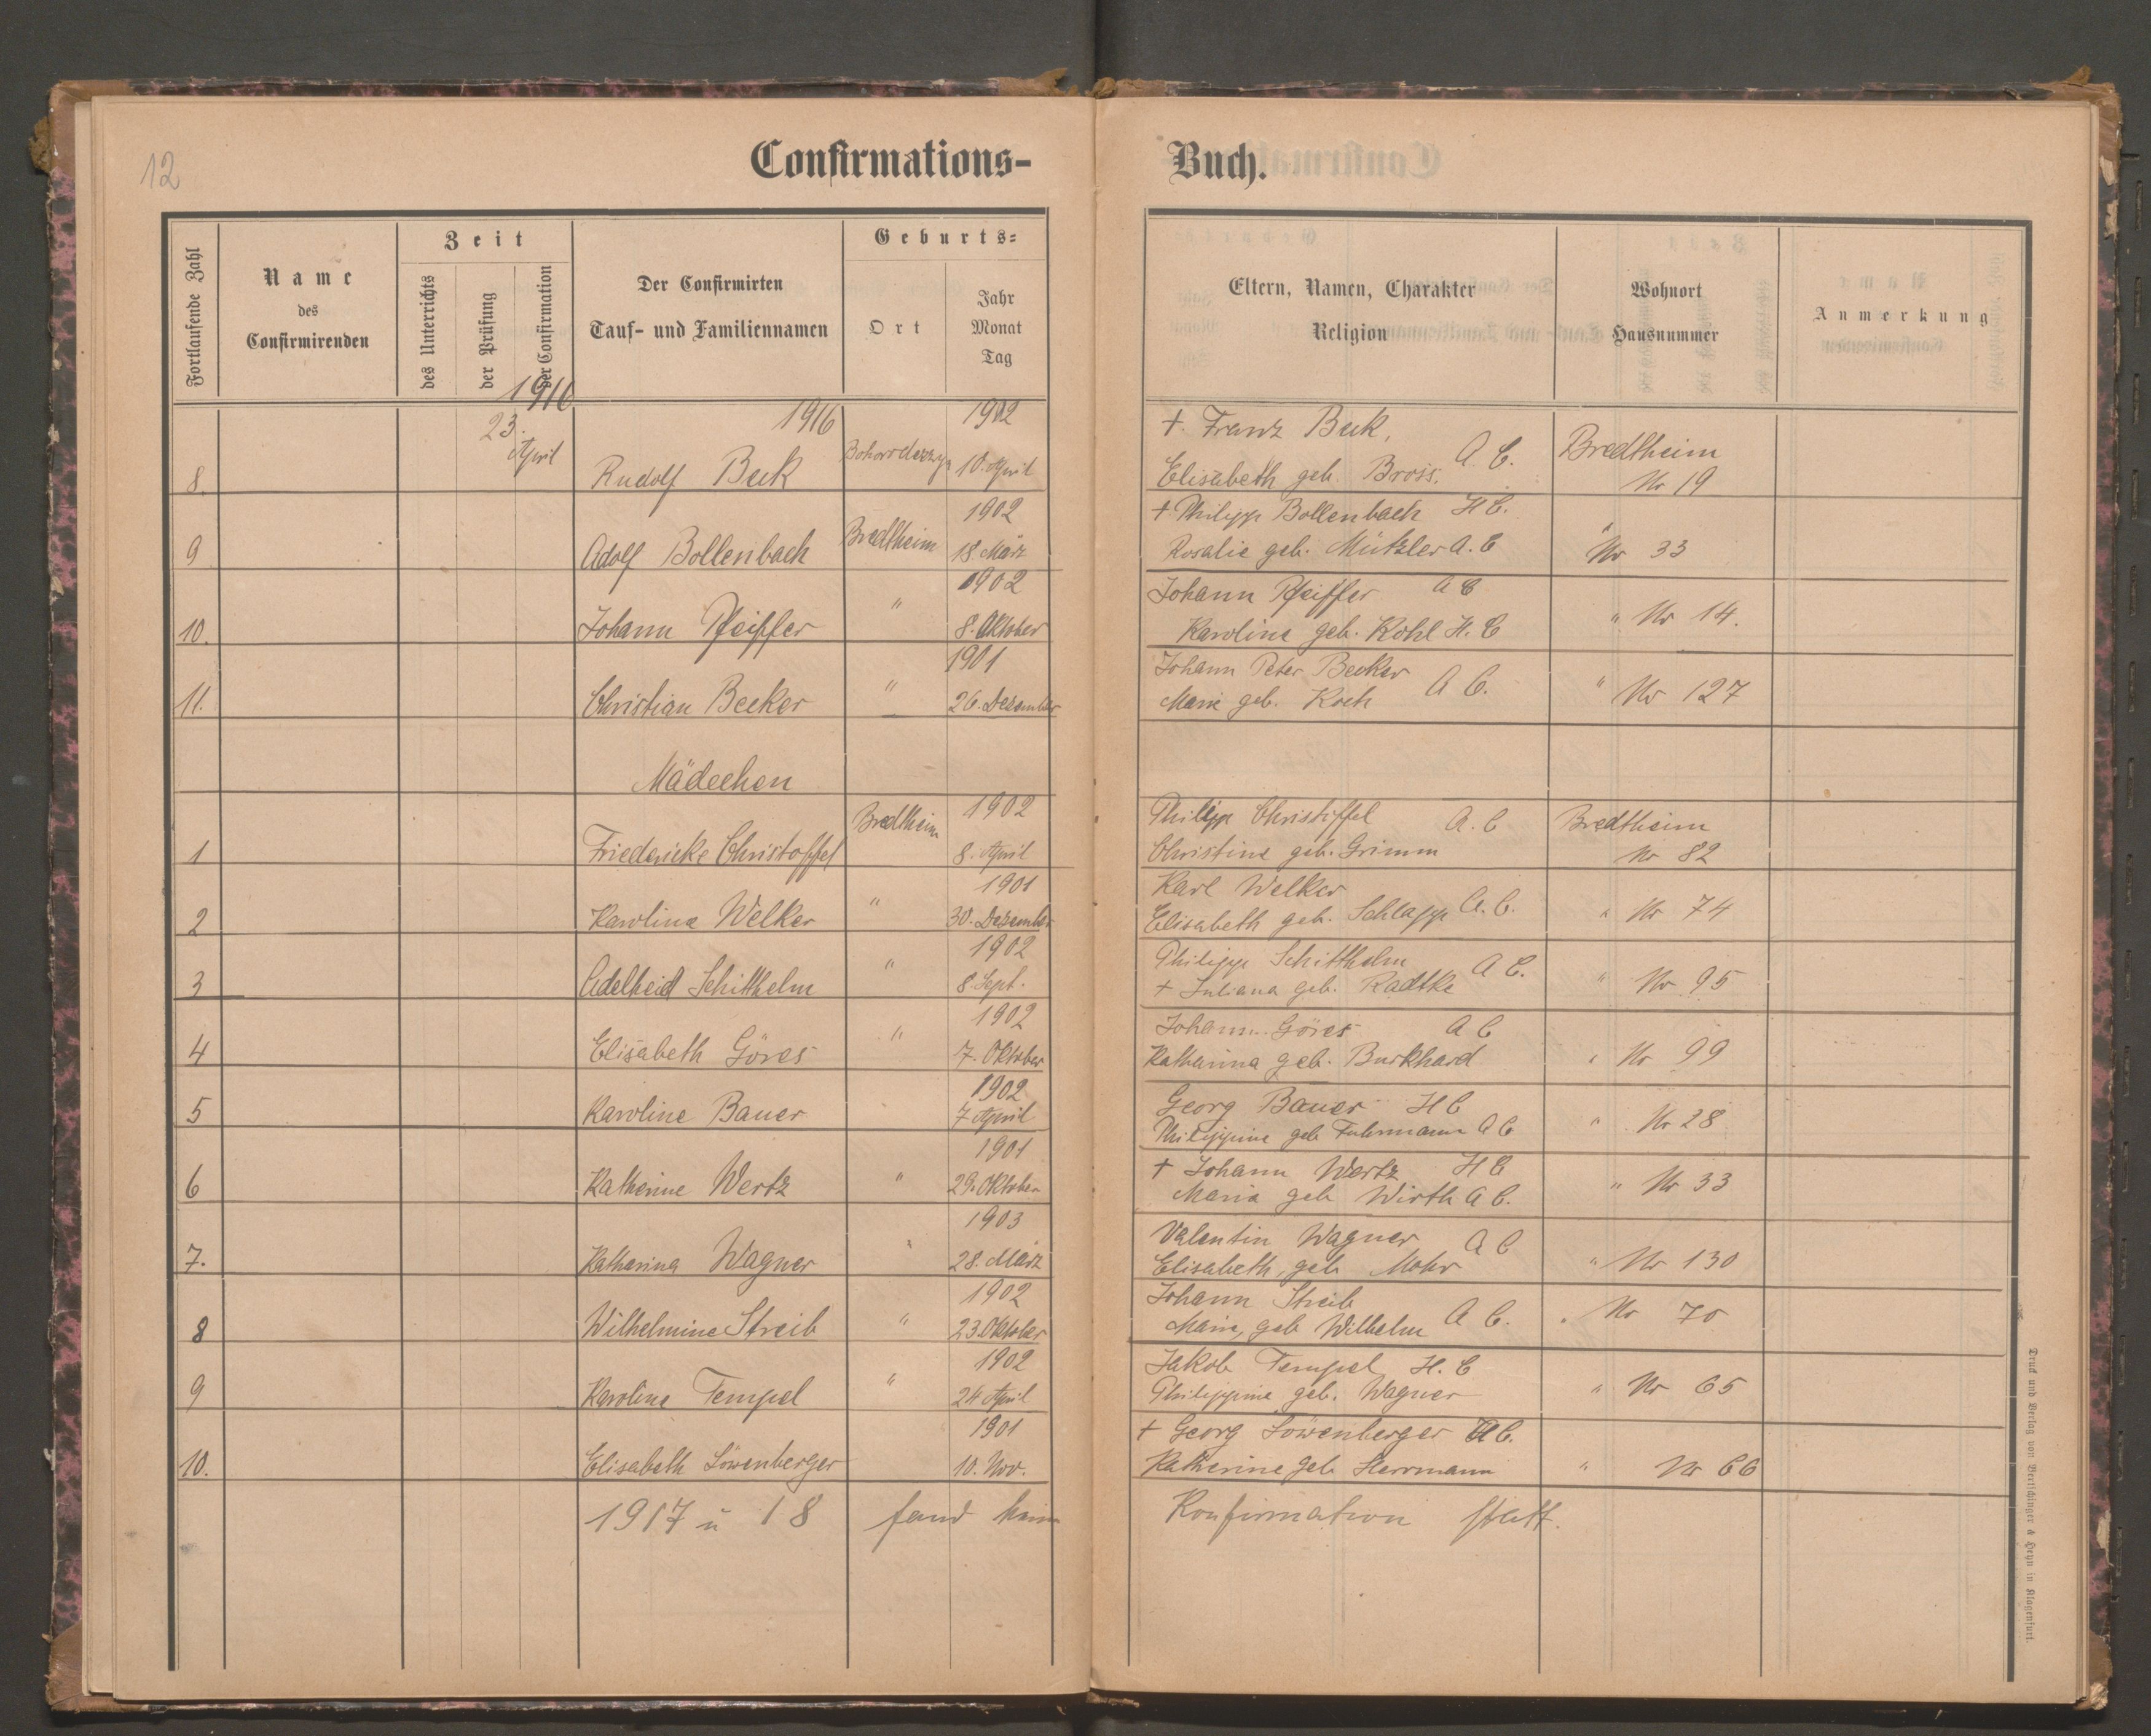 12
Confirmations-
Buch.
Fortlaufende Zahl
Name
des
Confirmirenden
Zeit
des Unterrichts
der Prüfung
der Confirmation
Der Confirmirten
Tauf- und Familiennamen
Geburts-
Ort
Jahr
Monat
Tag
Eltern, Namen, Charakter
Religion
Wohnort
Hausnummer
Anmerkung
1916
23.
April
1916
1902
+. Franz Beck,
8. Rudolf Beck 10. April
Elisabeth geb. Bross. A. C.
Bredtheim
Nr 19
1902
+ Philipp Bollenbach H C.
9 Adolf Bollenbach Bredtheim 18. März
Rosalie geb. Mützler A. C
" Nr 33
1902
Johann Pfeiffer A C
10. Johann Pfeiffer " 8. Oktober
Karoline geb. Kohl H. C
" Nr 14.
1901
Johann Peter Becker
11. Christian Becker " 26. Dezember
Marie geb. Koch A C.
" Nr 127
Mädechen
1902
Philipp Christoffel A. C
Bredtheim
1 Friedericke Christoffel Bredtheim 8. April
Christine geb. Grimm
Nr 82
1901
Karl Welker
2 Karolina Welker " 30. Dezember
Elisabeth geb. Schlapp A. C.
" Nr 74
1902
Philipp Schitthelm A C.
3 Adelheid Schitthelm " 8. Sept.
+ Juliana geb. Radtke
" Nr 95
1902
Johann Göres A C
4 Elisabeth Göres " 7. Oktober
Katharina geb. Burkhard
" Nr 99
1902
Georg Bauer H C
5 Karoline Bauer 7 April
Philippine geb Fuhrmann A C
" Nr 28
1901
+ Johann Wertz H C
6 Katherine Wertz " 29. Oktober
Maria geb Wirth A C.
" Nr 33
1903
Valentin Wagner A C
7. Katharina Wagner " 28. März
Elisabeth, geb Mohr
" Nr 130
1902
Johann Streib
8 Wilhelmine Streib " 23 Oktober
Marie, geb Wilhelm A C.
" Nr 70
1902
Jakob Tempel H. C
9 Karoline Tempel " 24 April
Philippine geb. Wagner
" Nr 65
1901
+ Georg Löwenberger C.
10. Elisabeth Löwenberger 10. Nov.
Katherine geb Herrmann
" Nr 66
1917 u 18 fand keine Konfirmation statt.
Druck und Verlag von Bertschinger & Heyn in Klagenfurt.